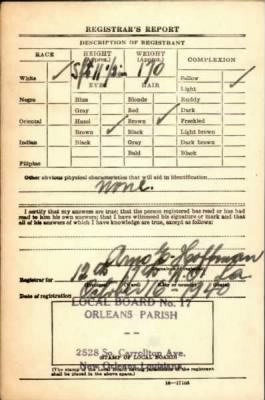 REGISTRAR'S REPORT
DESCRIPTION OF REGISTRANT
RACE HEIGHT (Approx.) WEIGHT (Approx.) COMPLEXION
White ✓ 5 ft 11 ½ in 170 Sallow ✓
EYES HAIR Light
Negro Blue Blonde Ruddy
Gray Red Dark
Oriental Hazel Brown ✓ Freckled
Brown ✓ Black Light brown
Indian Black Gray Dark brown
Bald Black
Filipino
Other obvious physical characteristics that will aid in identification
None.
I certify that my answers are true; that the person registered has read or has had
read to him his own answers; that I have witnessed his signature or mark and that
all of his answers of which I have knowledge are true, except as follows:
Hoffman
Registrar for 12th 19th N.O. La
Date of registration Oct 16 - 1940
LOCAL BOARD No. 17
ORLEANS PARISH
STAMP OF LOCAL BOARD
2528 So. Carrollton Ave.
New Orleans, Louisiana
(The stamp of the Local Board having jurisdiction of the registrant
shall be placed in the above space.)